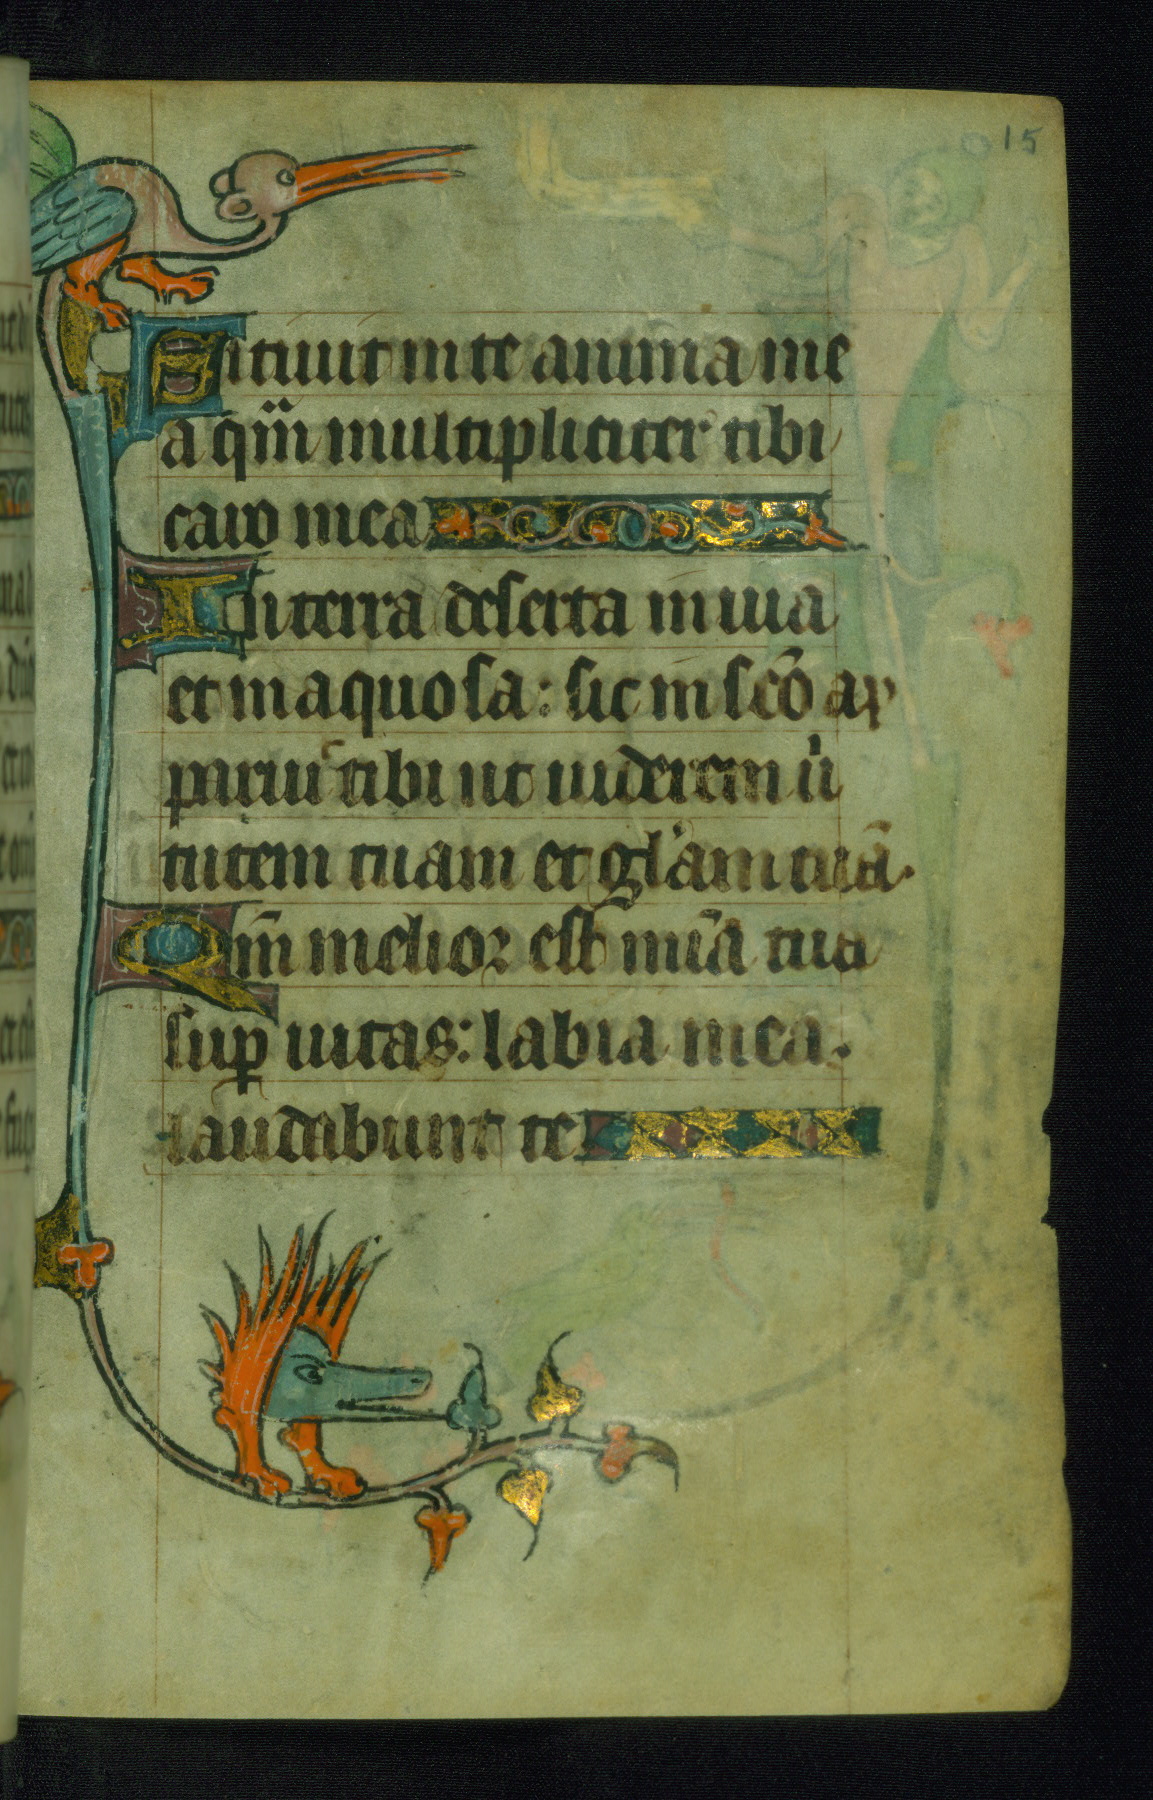 15
Sitiuit in te anim̄a me
a qm̄ multipliciter tibi
caro mea
In terra deserta in uia
et in aquosa: sic in sc̄o ap
parui tibi ut uiderem uir
tutem tuam et gl'am tuā.
Qm̄ melior est mīa tua
sup uitas: labia mea.
laudabunt te